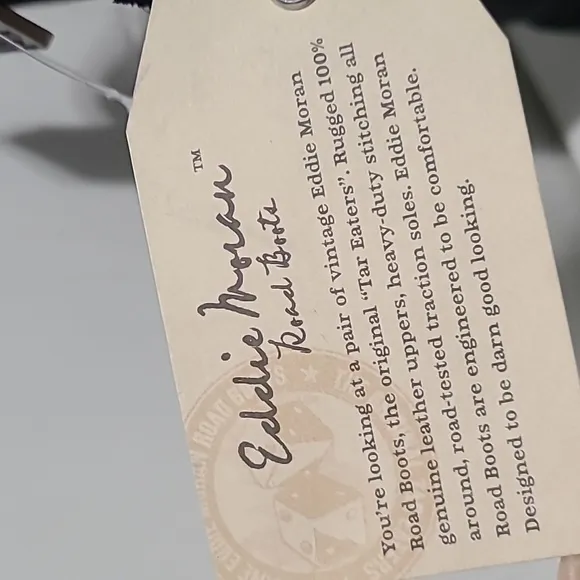 Eddie Moran™
Road Boots
You're looking at a pair of vintage Eddie Moran
Road Boots, the original "Tar Eaters". Rugged 100%
genuine leather uppers, heavy-duty stitching all
around, road-tested traction soles. Eddie Moran
Road Boots are engineered to be comfortable.
Designed to be darn good looking.
ROAD